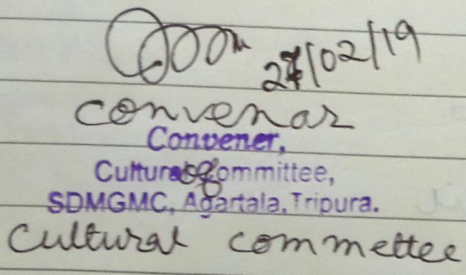 27/02/19
convenar
Convener,
Cultural Committee,
SDMGMC, Agartala, Tripura.
Cultural commettee